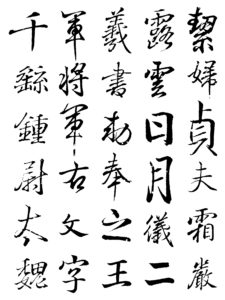 絜婦貞夫霜嚴
露雲日月儀二
羲書勅奉之王
軍將軍右文字
千繇鍾尉太魏